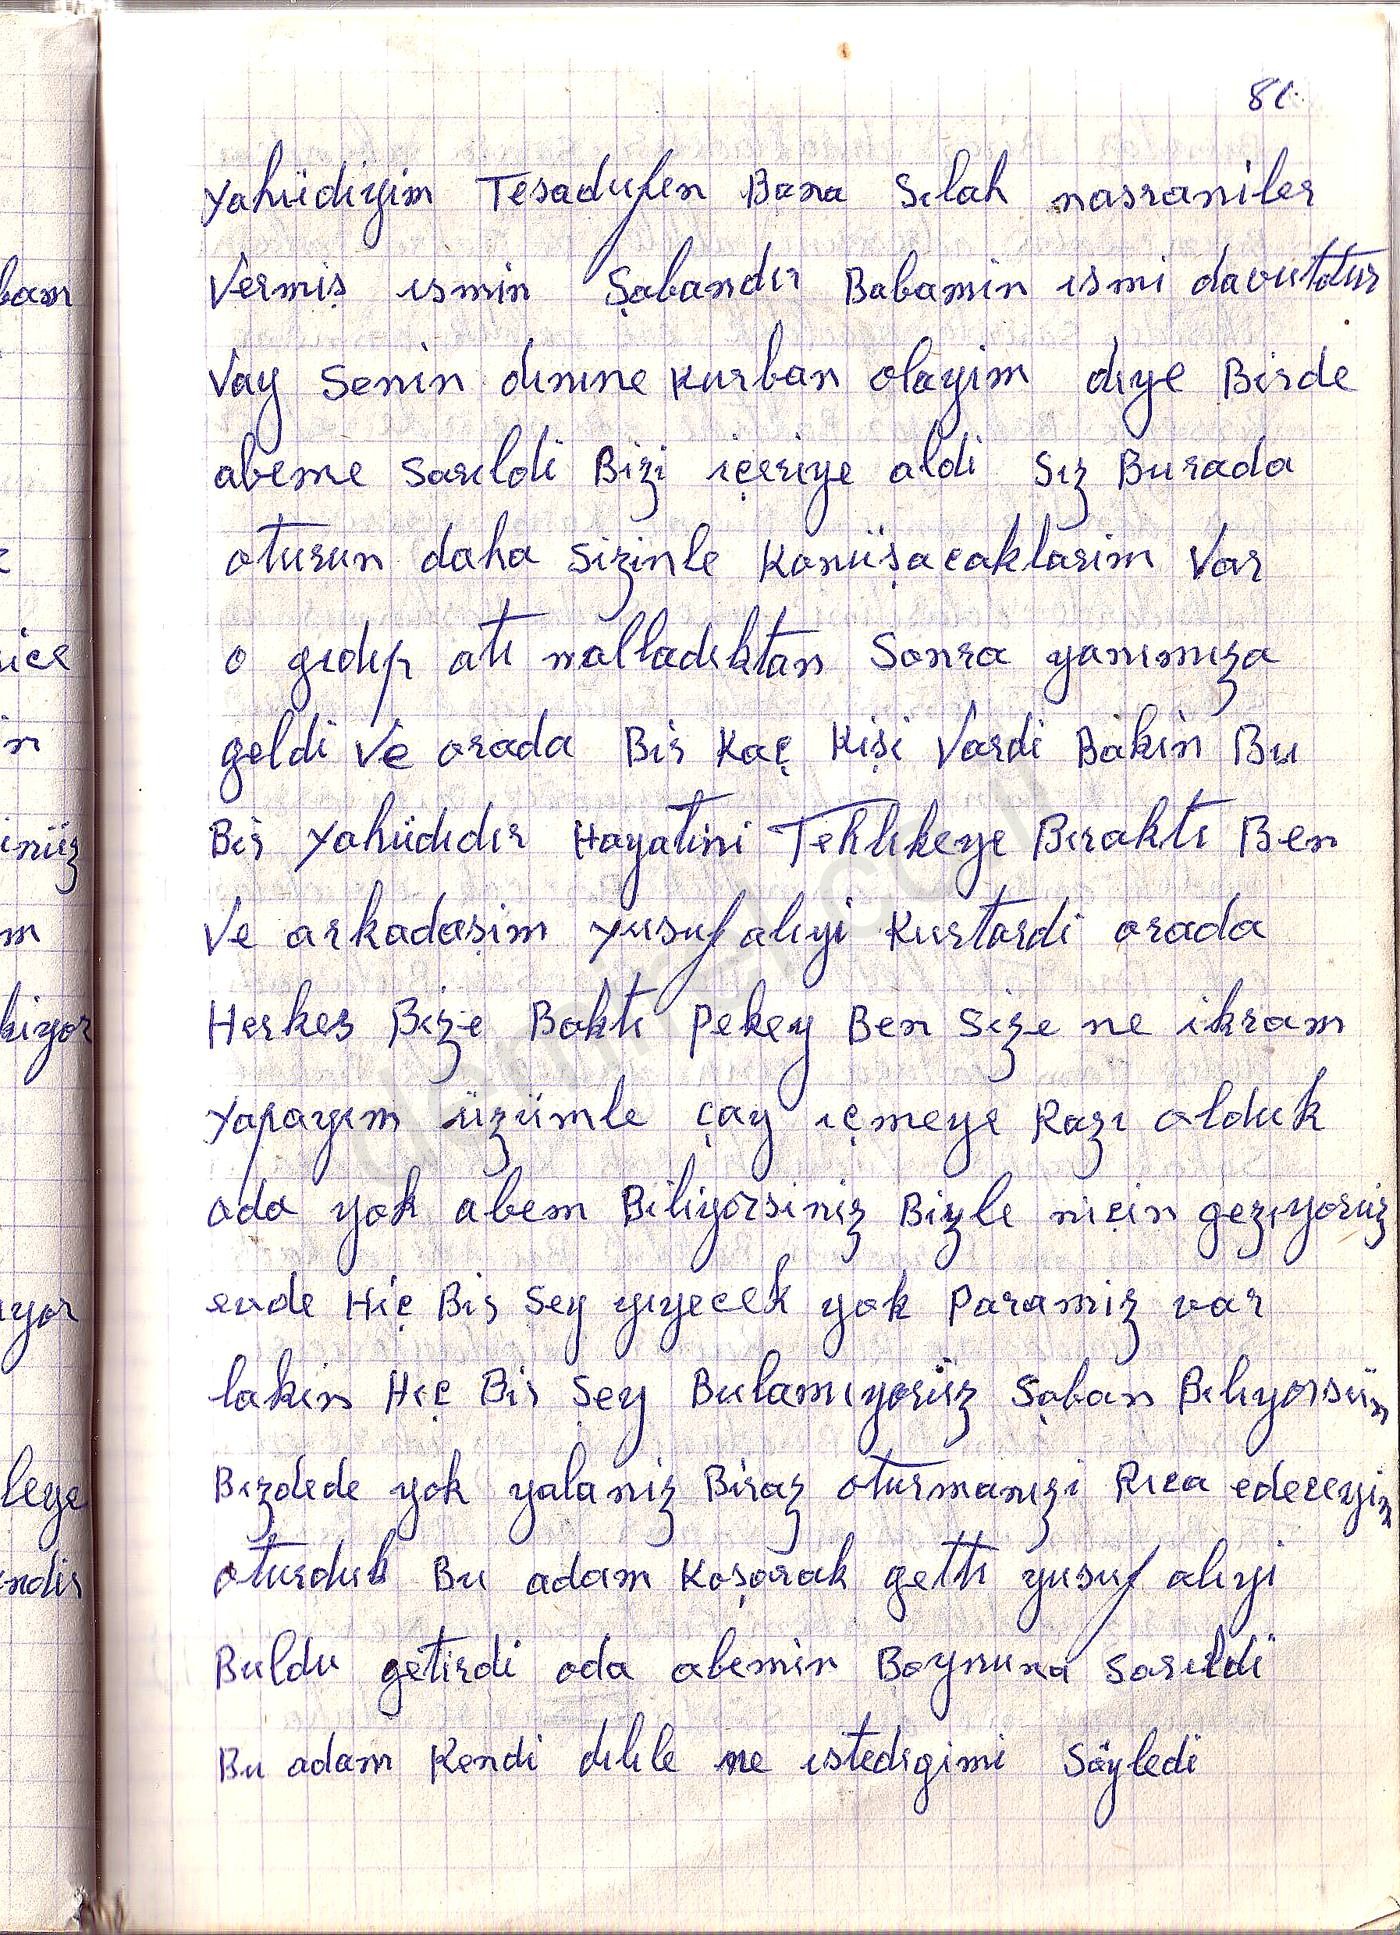 81
Yahüdiyim Tesadufen Bana Sılah nasraniler
Vermiş ısmin Şabandır Babamin ısmi davuttur
Vay Senin dınıne Kurban olayim dıye Birde
abeme Sarıldi Bizi içeriye aldi Sız Burada
oturun daha Sizinle Konüşacaklarim Var
o gıdıp atı nalladıktan Sonra yanımıza
geldi Ve orada Bir Kaç Kişi Vardi Bakin Bu
Bir Yahüdıdır Hayatini Tehlıkeye Bıraktı Ben
Ve arkadaşim Yusuf alıyi Kurtardi orada
Herkes Bize Baktı Pekey Ben Size ne ikram
Yapayım üzümle çay ıçmeye Razı olduk
oda yok abem Biliyorsiniz Bizle niçin gezıyoruz
evde Hiç Bir Sey yıyecek yok Paramiz var
lakin Hıç Bir Şey Bulamıyorüz Şaban Bılıyorsün
Bızdede yok yalaniz Biraz oturmanızi Rıca edeceyim
oturduk Bu adam Koşarak gettı yusuf alıyi
Buldu getirdi oda abemin Boynuna Sarıldi
Bu adam Kendi dılıle ne ıstedıgimi Söyledi
bam
ice
in
inüz
m
kiyor
ıyor
leye
ndir